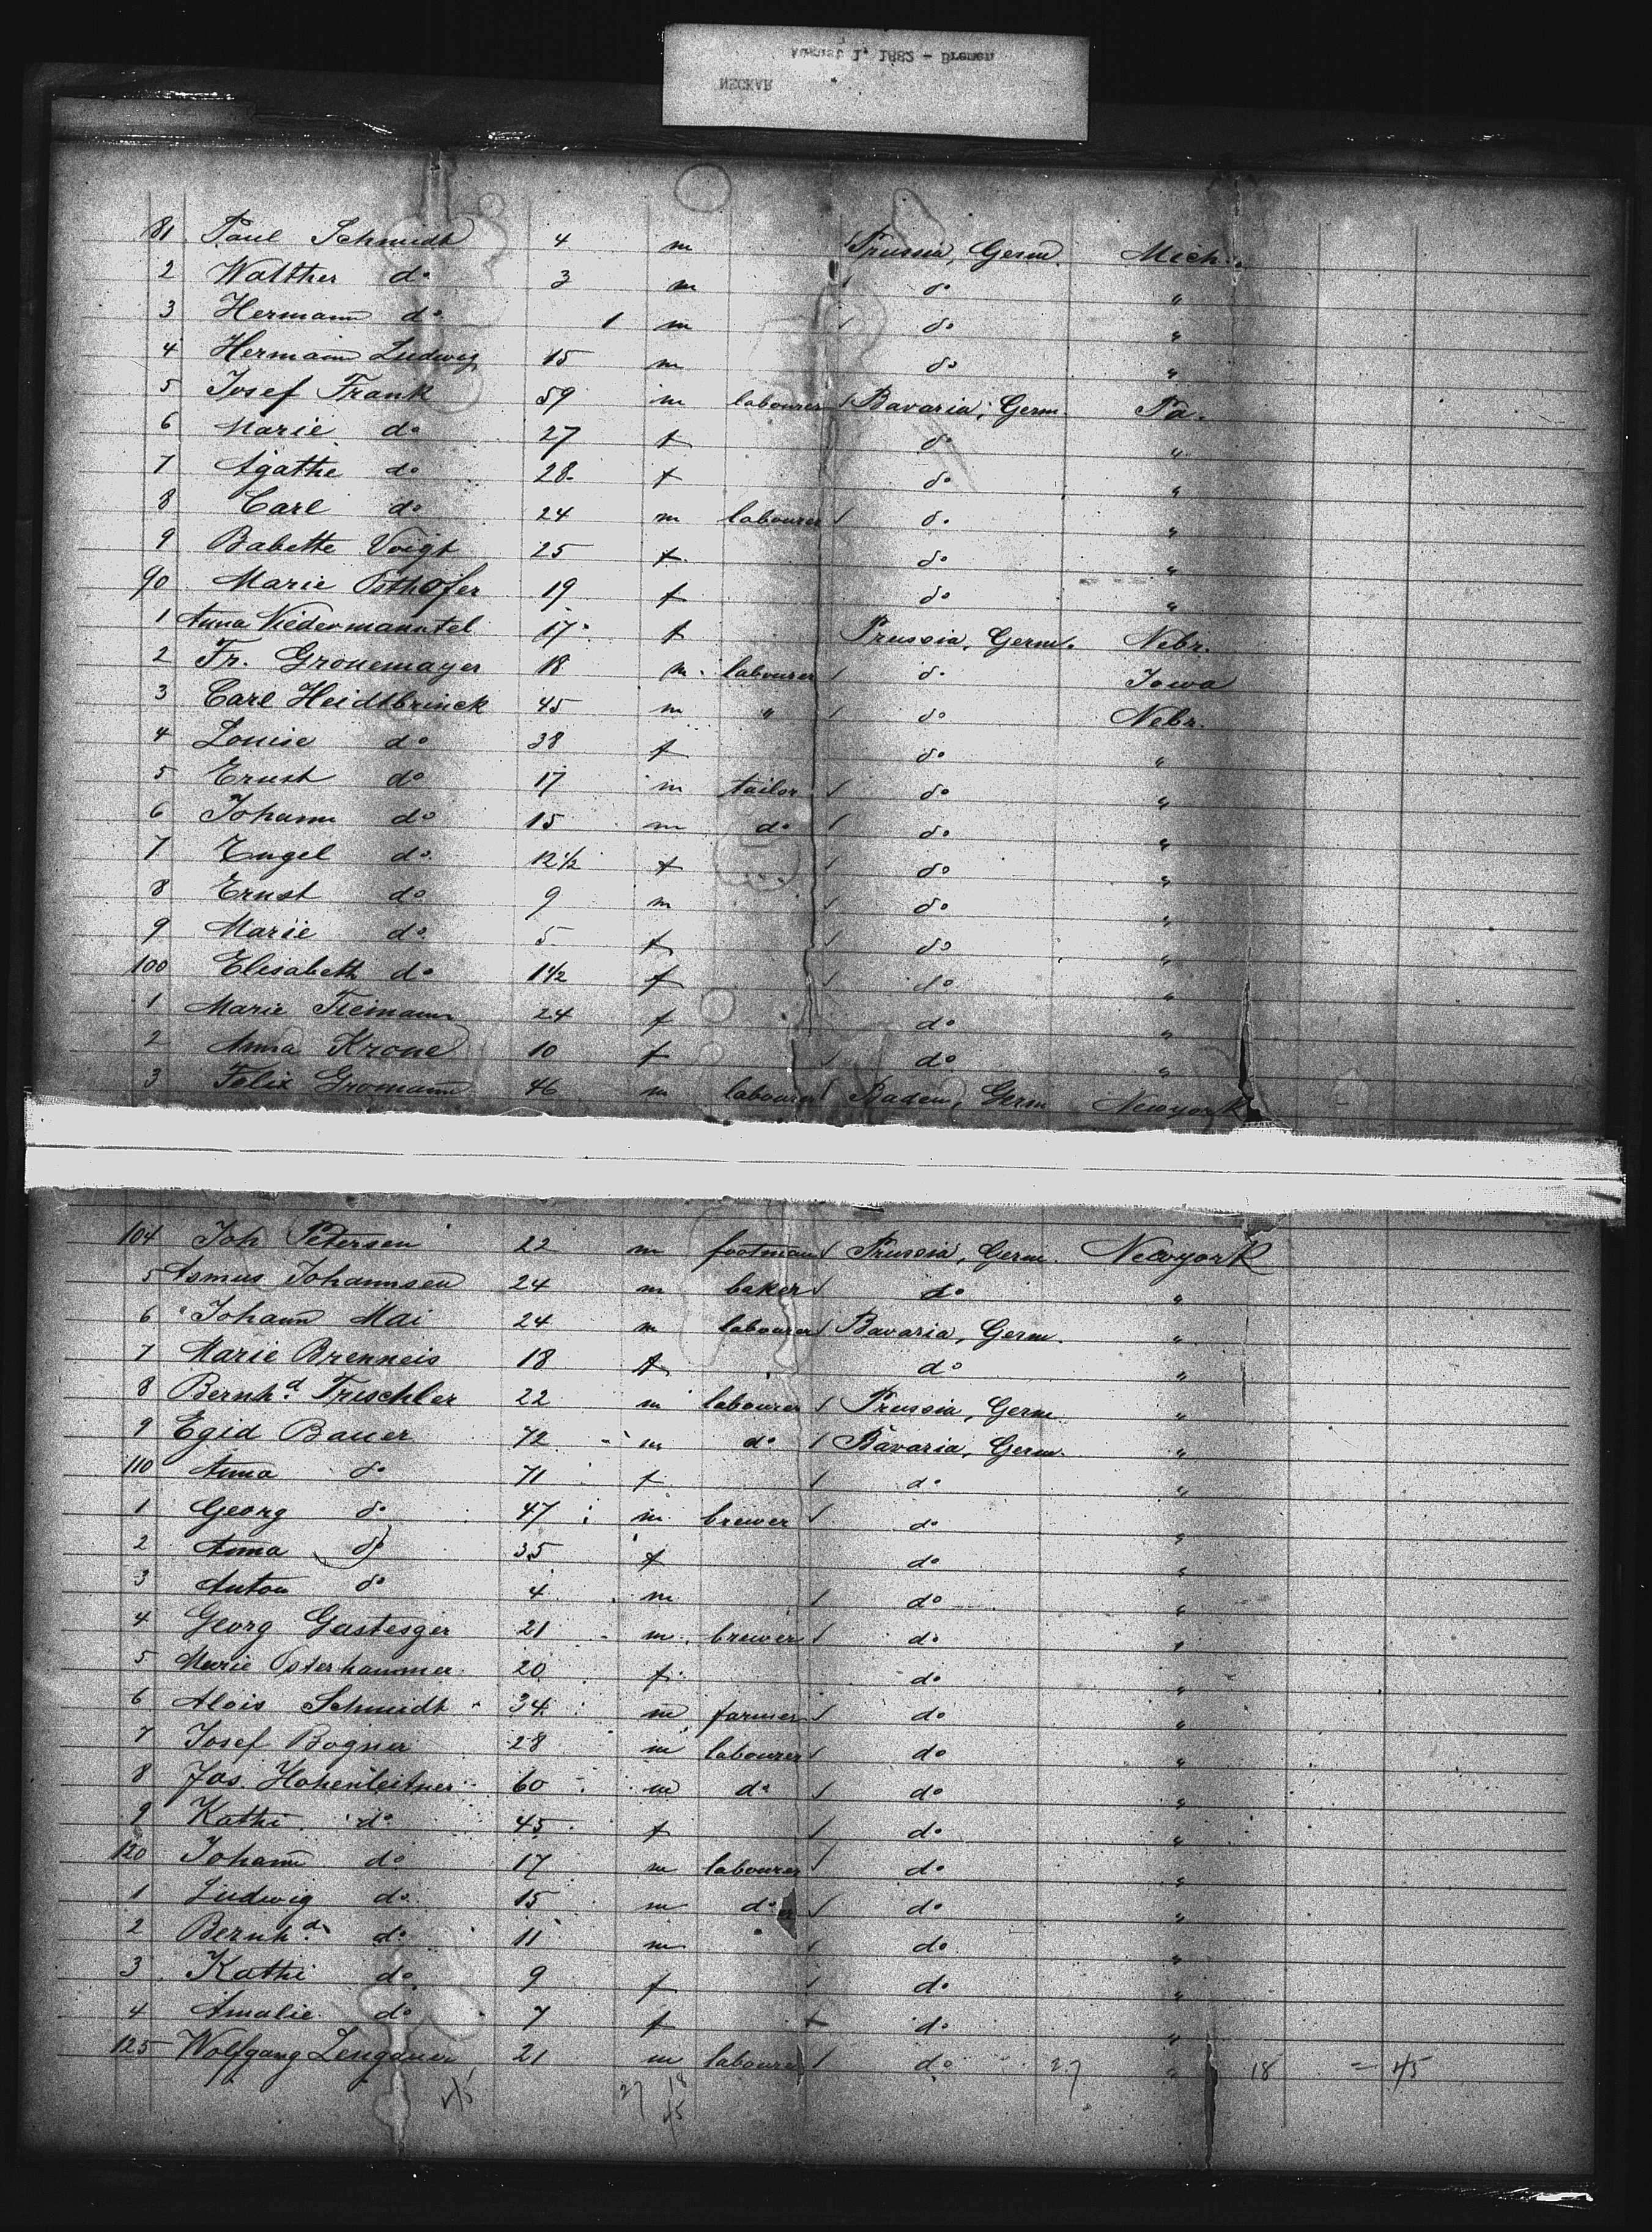 August 1, 1882 - Bremen
NECKAR
81 Paul Schmidt 4 m Prussia, Germ. Mich.
2 Walther do 3 m do "
3 Hermann do 1 m do "
4 Hermann Ludwig 15 m do "
5 Josef Frank 59 m labourer Bavaria, Germ. Pa.
6 Marie do 27 f do "
7 Agathe do 28 f do "
8 Carl do 24 m labourer do "
9 Babette Voigt 25 f do "
90 Marie Osthofer 19 f do "
1 Anna Niedermanntel 17 f Prussia, Germ. Nebr.
2 Fr. Gronemayer 18 m labourer do Iowa
3 Carl Heidtbrinck 45 m " do Nebr.
4 Louise do 38 f do "
5 Ernst do 17 m tailor do "
6 Johann do 15 m do do "
7 Engel do 12 1/2 f do "
8 Ernst do 9 m do "
9 Marie do 5 f do "
100 Elisabeth do 1 1/2 f do "
1 Marie Tiemann 24 f do "
2 Anna Krone 10 f do "
3 Felix Gromann 46 m labourer Baden, Germ Newyork
104 Joh Petersen 22 m footman Prussia, Germ. Newyork
5 Asmus Johannsen 24 m baker do "
6 Johann Mai 24 m labourer Bavaria, Germ. "
7 Marie Brenneis 18 f do "
8 Bernhd Trischler 22 m labourer Prussia, Germ. "
9 Egid Bauer 72 m do Bavaria, Germ. "
110 Anna do 71 f do "
1 Georg do 47 m brewer do "
2 Anna do 35 f do "
3 Anton do 4 m do "
4 Georg Gasteiger 21 m brewer do "
5 Marie Osterhammer 20 f do "
6 Alois Schmidt 34 m farmer do "
7 Josef Bogner 28 m labourer do "
8 Jos. Hohenleitner 60 m do do "
9 Kathi do 45 f do "
120 Johann do 17 m labourer do "
1 Ludwig do 15 m do do "
2 Bernhd do 11 m do "
3 Kathi do 9 f do "
4 Amalie do 7 f do "
125 Wolfgang Lengauer 21 m labourer do 27 " 18 = 45
45 27 18
45